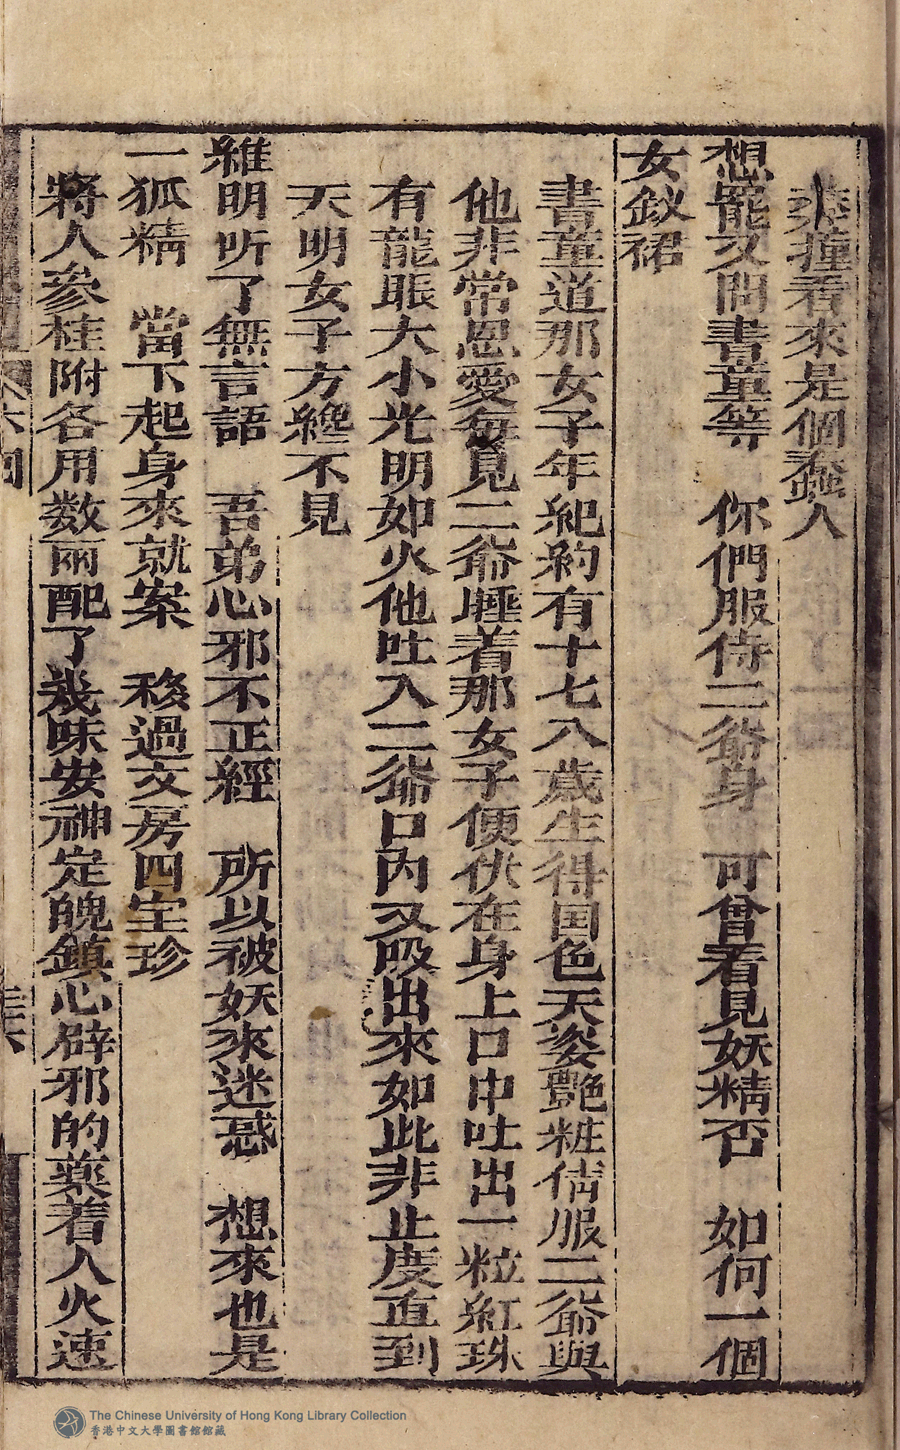 來撞看來是個蠢人
想罷又問書童等　你們服侍二爺身　可曾看見妖精否　如何一個
女釵裙
書童道那女子年紀約有十七八歲生得国色天姿艷粧倩服二爺與
他非常恩愛每見二爺睡着那女子便伏在身上口中吐出一粒紅珠
有龍眼大小光明如火他吐入二爺口內又吸出來如此非止度直到
天明女子方纔不見
維明听了無言語　吾弟心邪不正經　所以被妖來迷惑　想來也是
一狐精　當下起身來就案　移過文房四宝珍
將人參桂附各用数兩配了幾味安神定魄鎮心辟邪的藥着人火速
The Chinese University of Hong Kong Library Collection
香港中文大學圖書館館藏